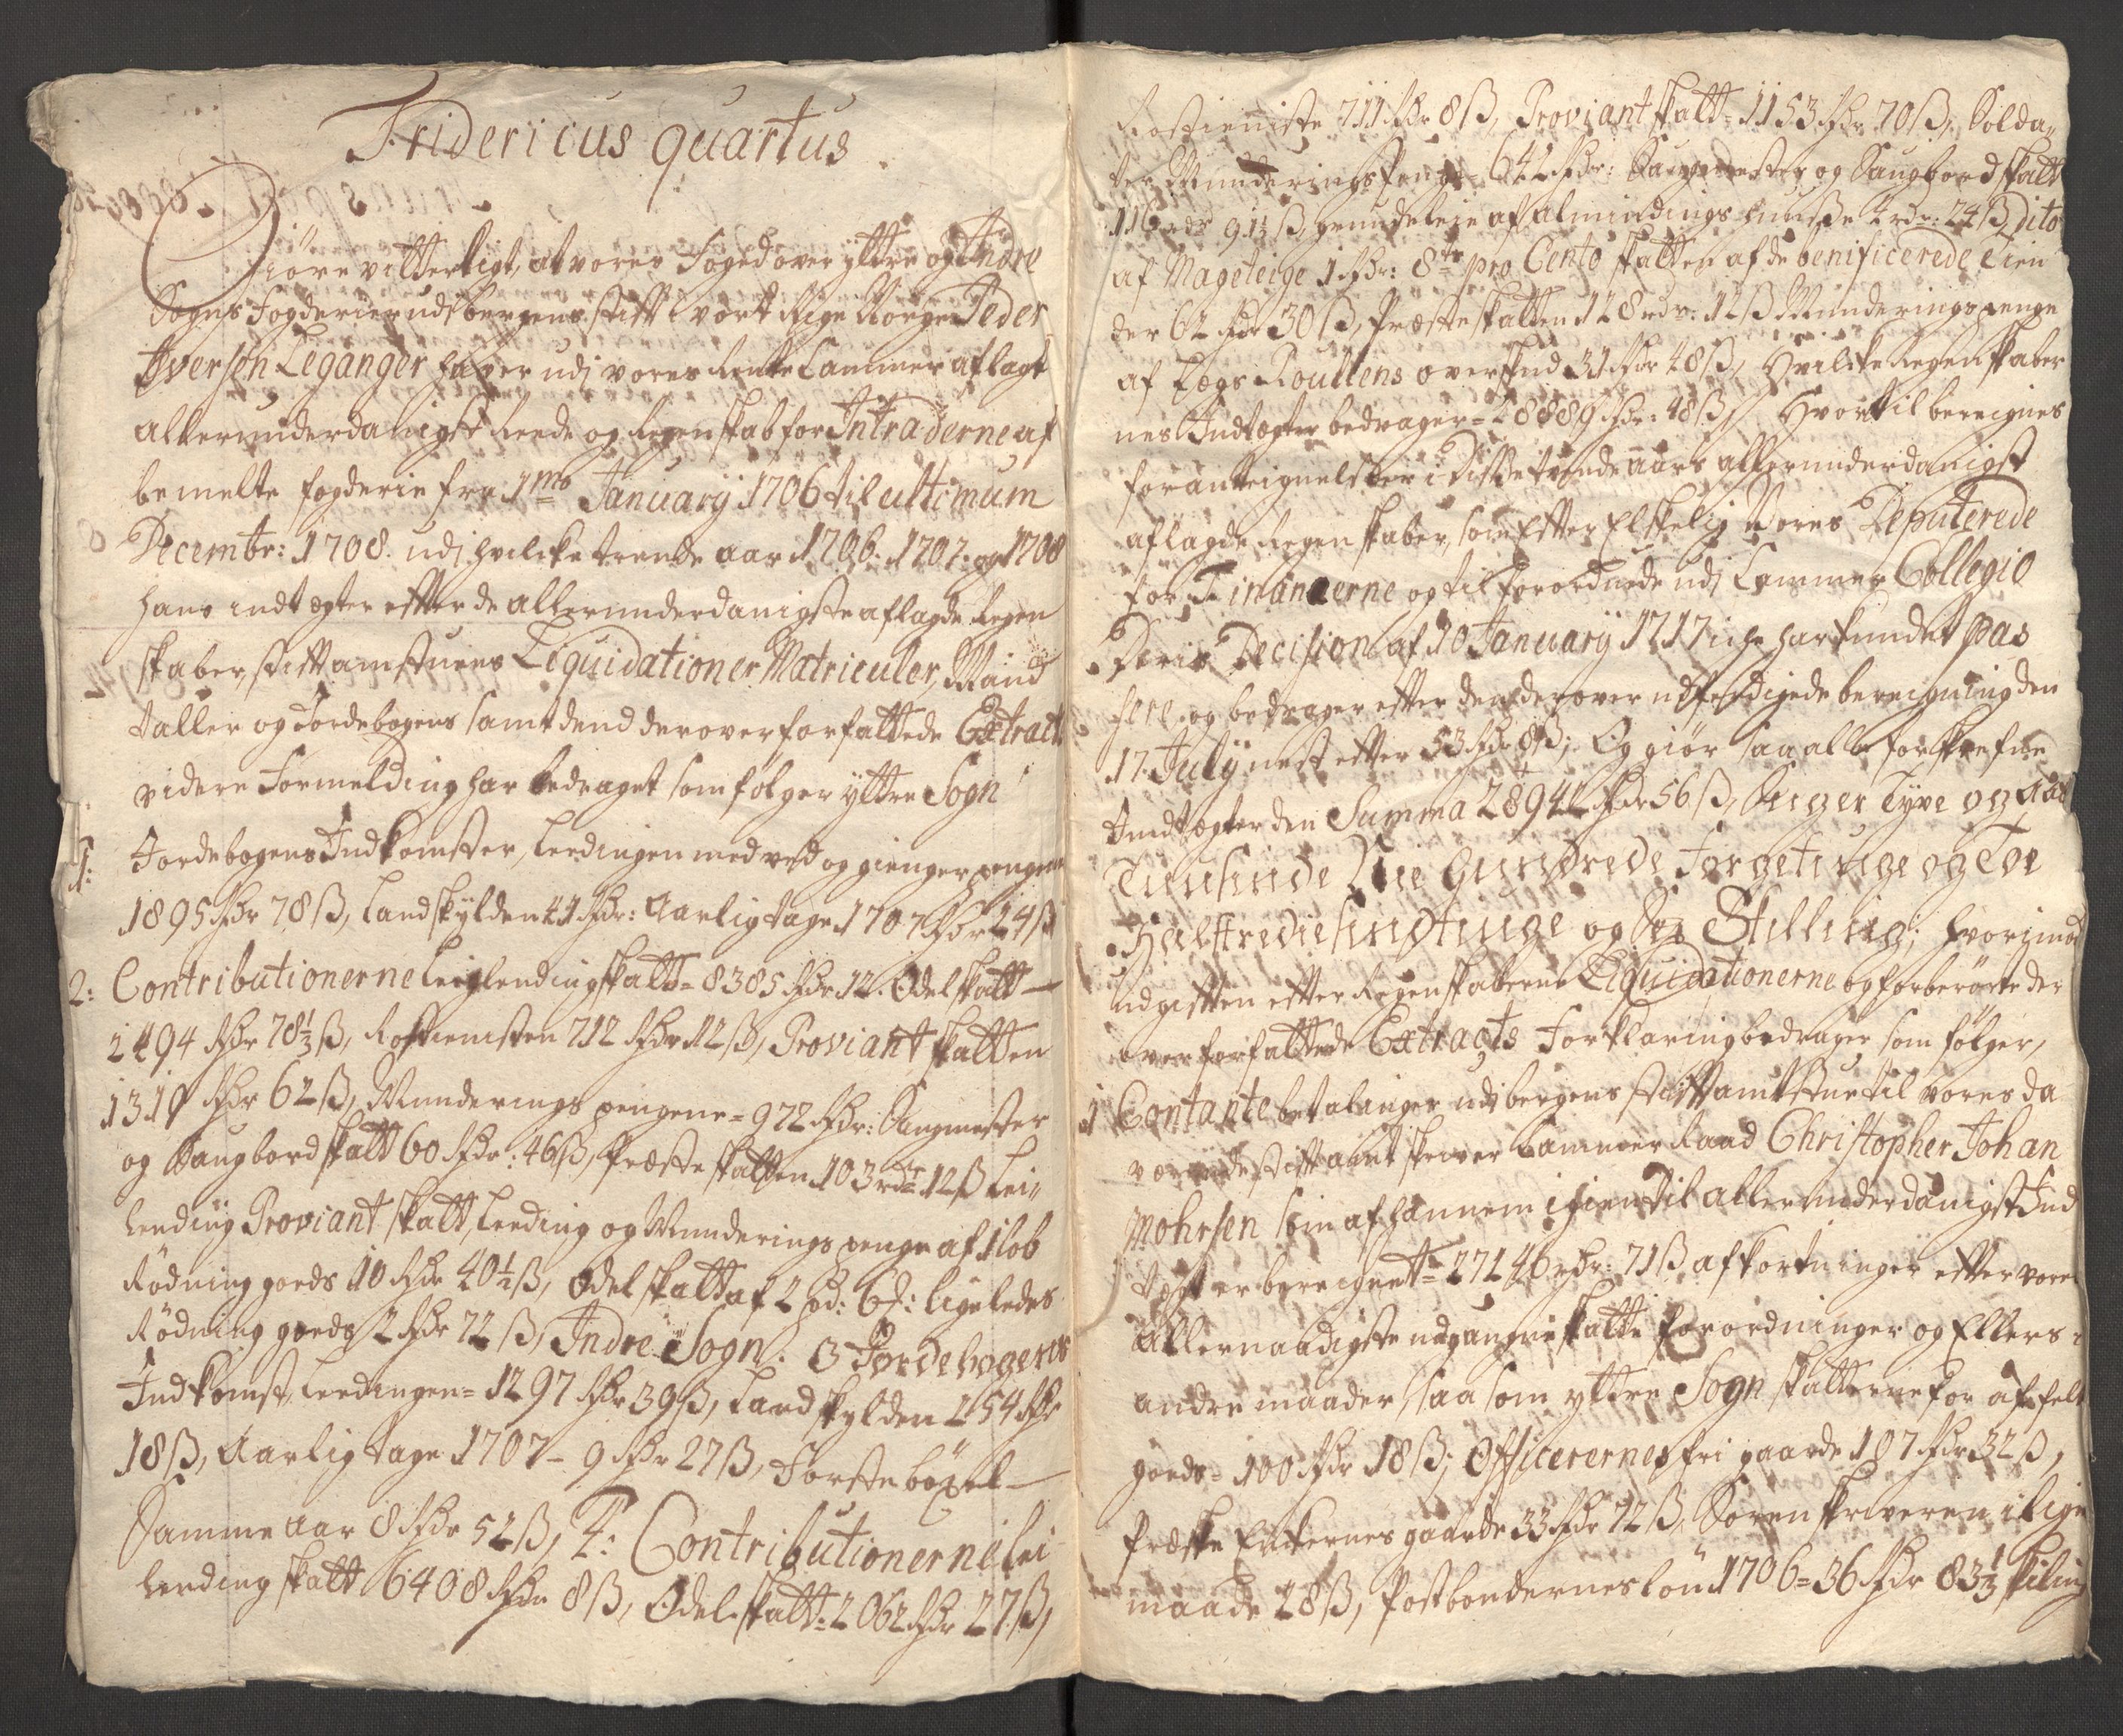 Fridericus quartus
Giöre vitterligt, at vores Foged over yttre og Indre
Sogns Fogderier udj bergens stift i vort Rige Norge Peder
Iverssön Leganger hafver udj vores Rente Cammer aflagt
allerunderdanigst Reede og Regenskab for Intraderne af
bemelte fogderie fra 1mo January 1706 til ultimum
Decembr: 1708. udj hvilke trende aar 1706. 1707. og 1708
hans indtegter efter de allerunderdanigste aflagde Regen
skaber, stiftamtstuens Liquidationer Matriculer, Mand
taller og Jordebogens samt dend derover forfattede Extract
videre Formelding har bedraget som fölger yttre Sogn
1: Jordebogens Indkomster, Leedingen med ved og giengerpengene
1895 Rdr 78 ß, Landskylden 41 Rdr: Aarlig tage 1707 Rdr 24 ß
2: Contributionerne Leiglendingskatt = 8385 Rdr 12. Odelskatt —
2494 Rdr 78⅓ ß, Rostienisten 712 Rdr 12 ß, Proviantskatten
1319 Rdr 62 ß, Munderings pengene = 972 Rdr: Saugmester
og Saugbordskatt 60 Rdr: 46 ß, Præsteskatten 103 rdr 12 ß Lei„
lending Proviant skatt, Leeding og Munderings penge af 1 lob
Rödning goeds 10 Rdr 40½ ß, Odelskatt af 2 pd: 6 : ligeledes
Rödning goeds 2 Rdr 72 ß, Indre Sogn. 3 Jordebogens
Indkomst, Leedingen = 1297 Rdr 39 ß, Landskylden 254 Rdr
18 ß, Aarlig tage 1707 – 9 Rdr 27 ß, Förste böxel —
Samme aar 8 Rdr 52 ß, 4: Contributionerne Lei
lendingskatt 6408 Rdr 8 ß, Odelskatt = 2062 Rdr 27 ß,
Rostieniste 711 Rdr 8 ß, Proviantskatt = 1153 Rdr 70 ß, Solda„
ter Munderings Penge = 642 Rdr: Saugmester og Saugbordskatt
116 rdr 91½ ß grundeleie af almindings huuse 2 rdr: 24 ß dito
af Mageteige 1 Rdr: 8te pro Cento skatten af de benificerede Tien
der 62 Rdr 30 ß, Præsteskatten 128 rdr: 12 ß Munderingspenge
af Lægs Roullens overskud 31 Rdr 48 ß, Hvilke Regenskaber
nes Indtægter bedrager = 28889 Rdr: 48 ß, Hvortil bereignes
for antegnelser i disse trende aars allerunderdanigst
aflagde Regenskaber, som efter Elskelig Vores Deputerede
for Finanzerne og tilforordnede udj Cammer Collegio
Deris Decision af 20 January 1717 icke har kundet pas
sere, og bedrager efter den derover udferdigede bereigning den
17. July nest efter 53 Rdr 8 ß; Og giör saa alle forskrefne
Indtægter den Summa 28942 Rdr 56 ß, Siger Tyve og Aate
Tuusinde Nie Hundrede Forgetiuge og Toe
Halftrediesindtiuge og Sex Skilling; hvorimod
udgiften efter Regenskaberne Liquidationerne og forberörte der
over forfattede Extracts Forklaring bedrager som fölger,
1 Contante betalinger udj bergens stiftamtstue til vores da
værende stiftamtskriver Cammer Raad Christopher Johan
Mohrsen som af hannem igien til allerunderdanigst Ind
tegt er bereignet = 27146 rdr: 71 ß afkortninger efter vores
Allernaadigste udgangne skatte forordninger og Ellers i
andre maader saa som yttre Sogn skatterne for affelt
goeds = 100 Rdr 18 ß; Officerernes fri gaarde 197 Rdr 32 ß,
Præste Enkernes gaarde 33 Rdr 72 ß, Sorenskriveren i lige
maade 28 ß, Postböndernes lön 1706 = 36 Rdr 83⅓ skiling